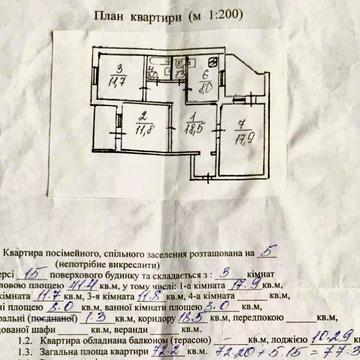 План квартири (м 1:200)
3
11,7
6
8,0
2
11,8
1
18,5
7
17,9
Квартира посімейного, спільного заселення розташована на 5
(непотрібне викреслити)
версі 15 поверхового будинку та складається з : 3 кімнат
ловою площею 41.4 кв.м, у тому числі: 1-а кімната 17.9 кв.м,
кімната 11.7 кв.м, 3-я кімната 11.8 кв.м, 4-а кімната — кв.м,
ні площею 8.0 кв.м, ванної кімнати 3.0 кв.м,
ральні (поєднаної) 1.3 кв.м, коридору 18.5 кв.м, передпокою — кв.м,
дованої шафи кв.м, веранди кв.м.
1.2. Квартира обладнана балконом (терасою) — кв.м, лоджією 10.29
1.3. Загальна площа квартири 72.2 кв.м. 72.20 + 5.15 = 77